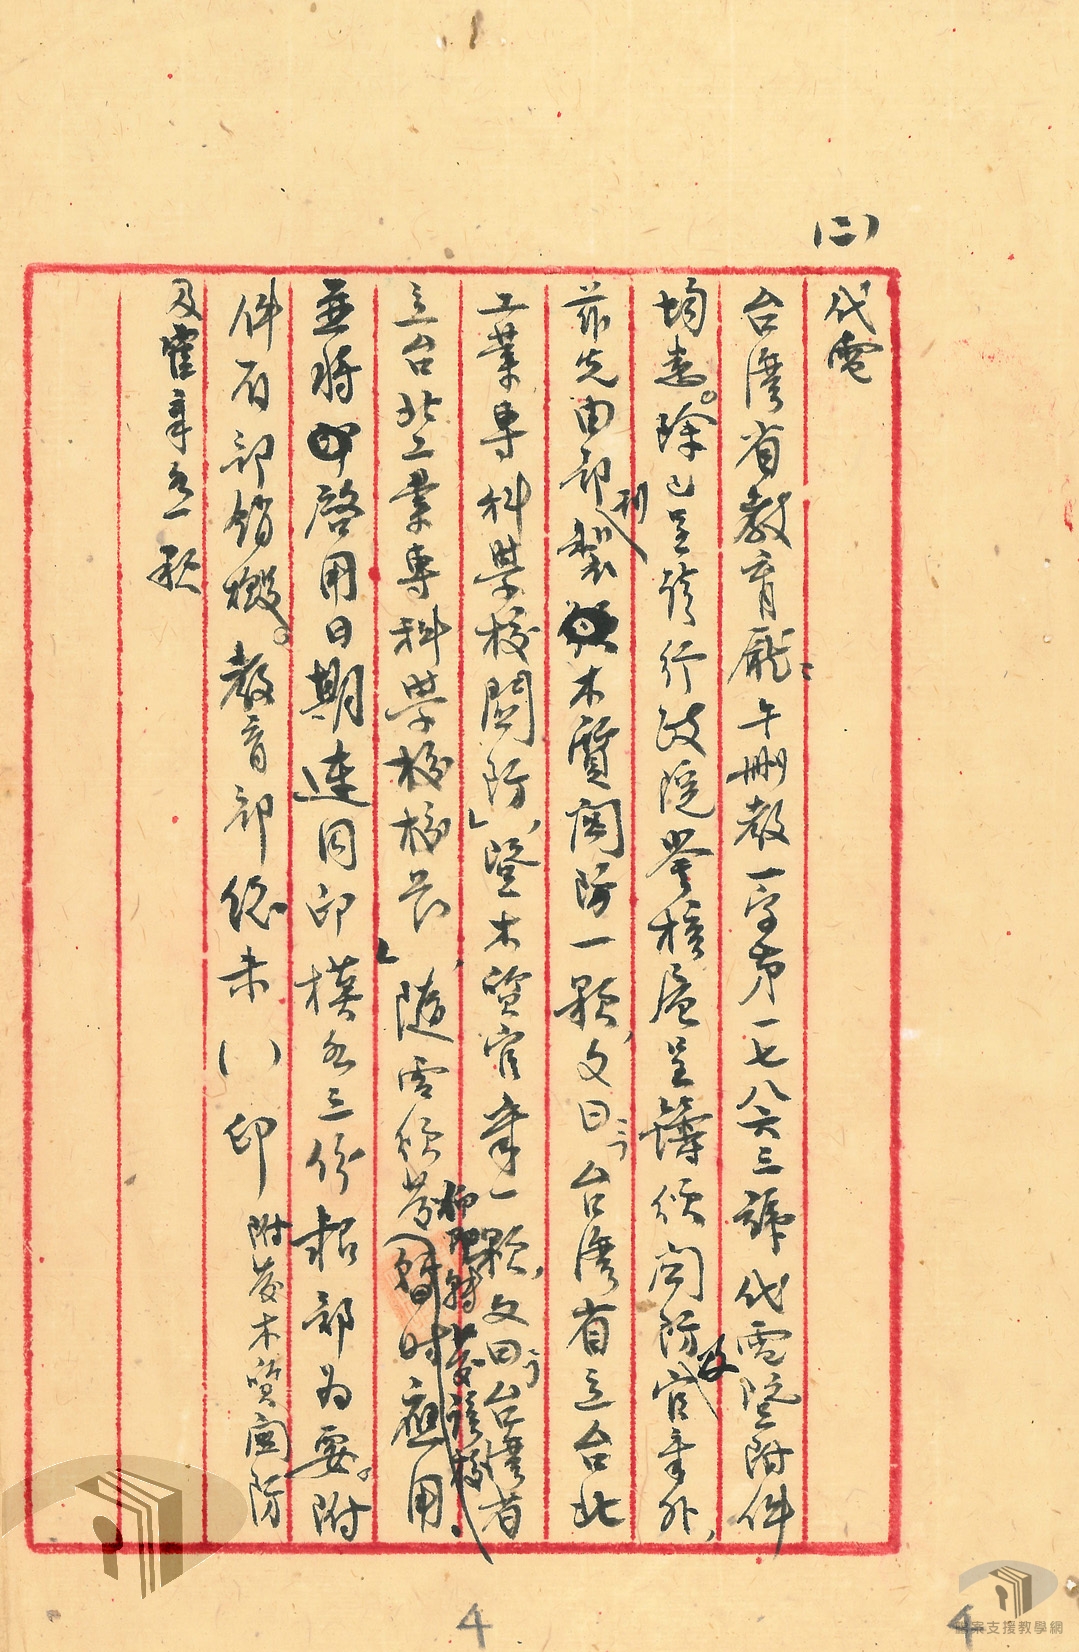 (二)
代電
台灣省教育廳：午刪教一字第一七八六三號代電暨附件
均悉。除已呈請行政院鑒核層呈鑄頒關防及官章外，
茲先由部刊製木質關防一顆，文曰：「台灣省立台北
工業專科學校關防」，暨木質官章一顆，文曰：「台灣省
立台北工業專科學校校長」，隨電頒發，
仰即轉發該校
暫時應用，
並將啓用日期連同印模各三份報部為要。附
件存部銷燬。教育部總未( )印 附發木質關防
及官章各一顆
4
4
檔案支援教學網